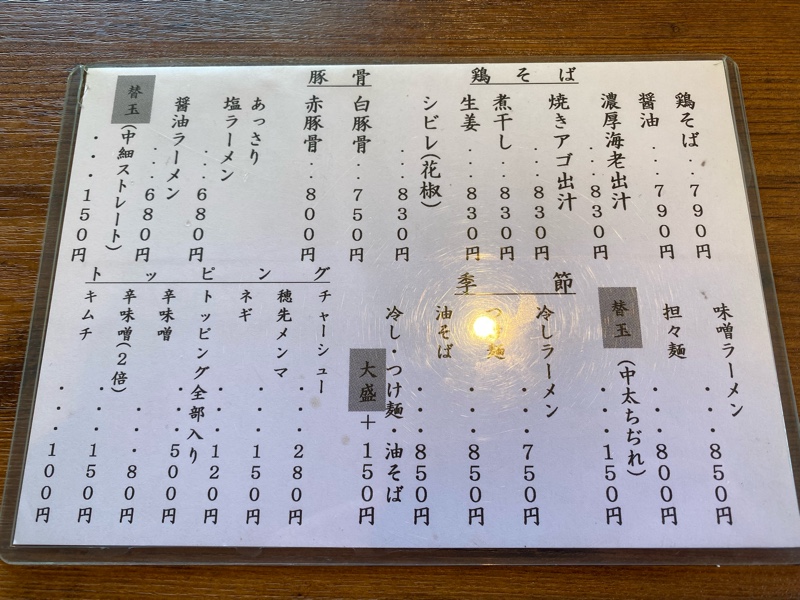 鶏そば
鶏そば・・790円
醤油・・・790円
濃厚海老出汁・・・830円
焼きアゴ出汁・・・830円
煮干し・・830円
生姜・・・830円
シビレ(花椒)・・・830円
豚骨
白豚骨・・750円
赤豚骨・・・800円
あっさり
塩ラーメン・・・680円
醤油ラーメン・・・680円
替玉(中細ストレート)・・・150円
味噌ラーメン・・・850円
担々麺・・・800円
替玉(中太ちぢれ)・・・150円
季節
冷しラーメン・・・750円
つけ麺・・・850円
油そば・・・850円
冷し・つけ麺・油そば
大盛+150円
トッピング
チャーシュー・・・280円
穂先メンマ・・・150円
ネギ・・・120円
トッピング全部入り・・・500円
辛味噌・・・80円
辛味噌(2倍)・・・150円
キムチ・・・100円